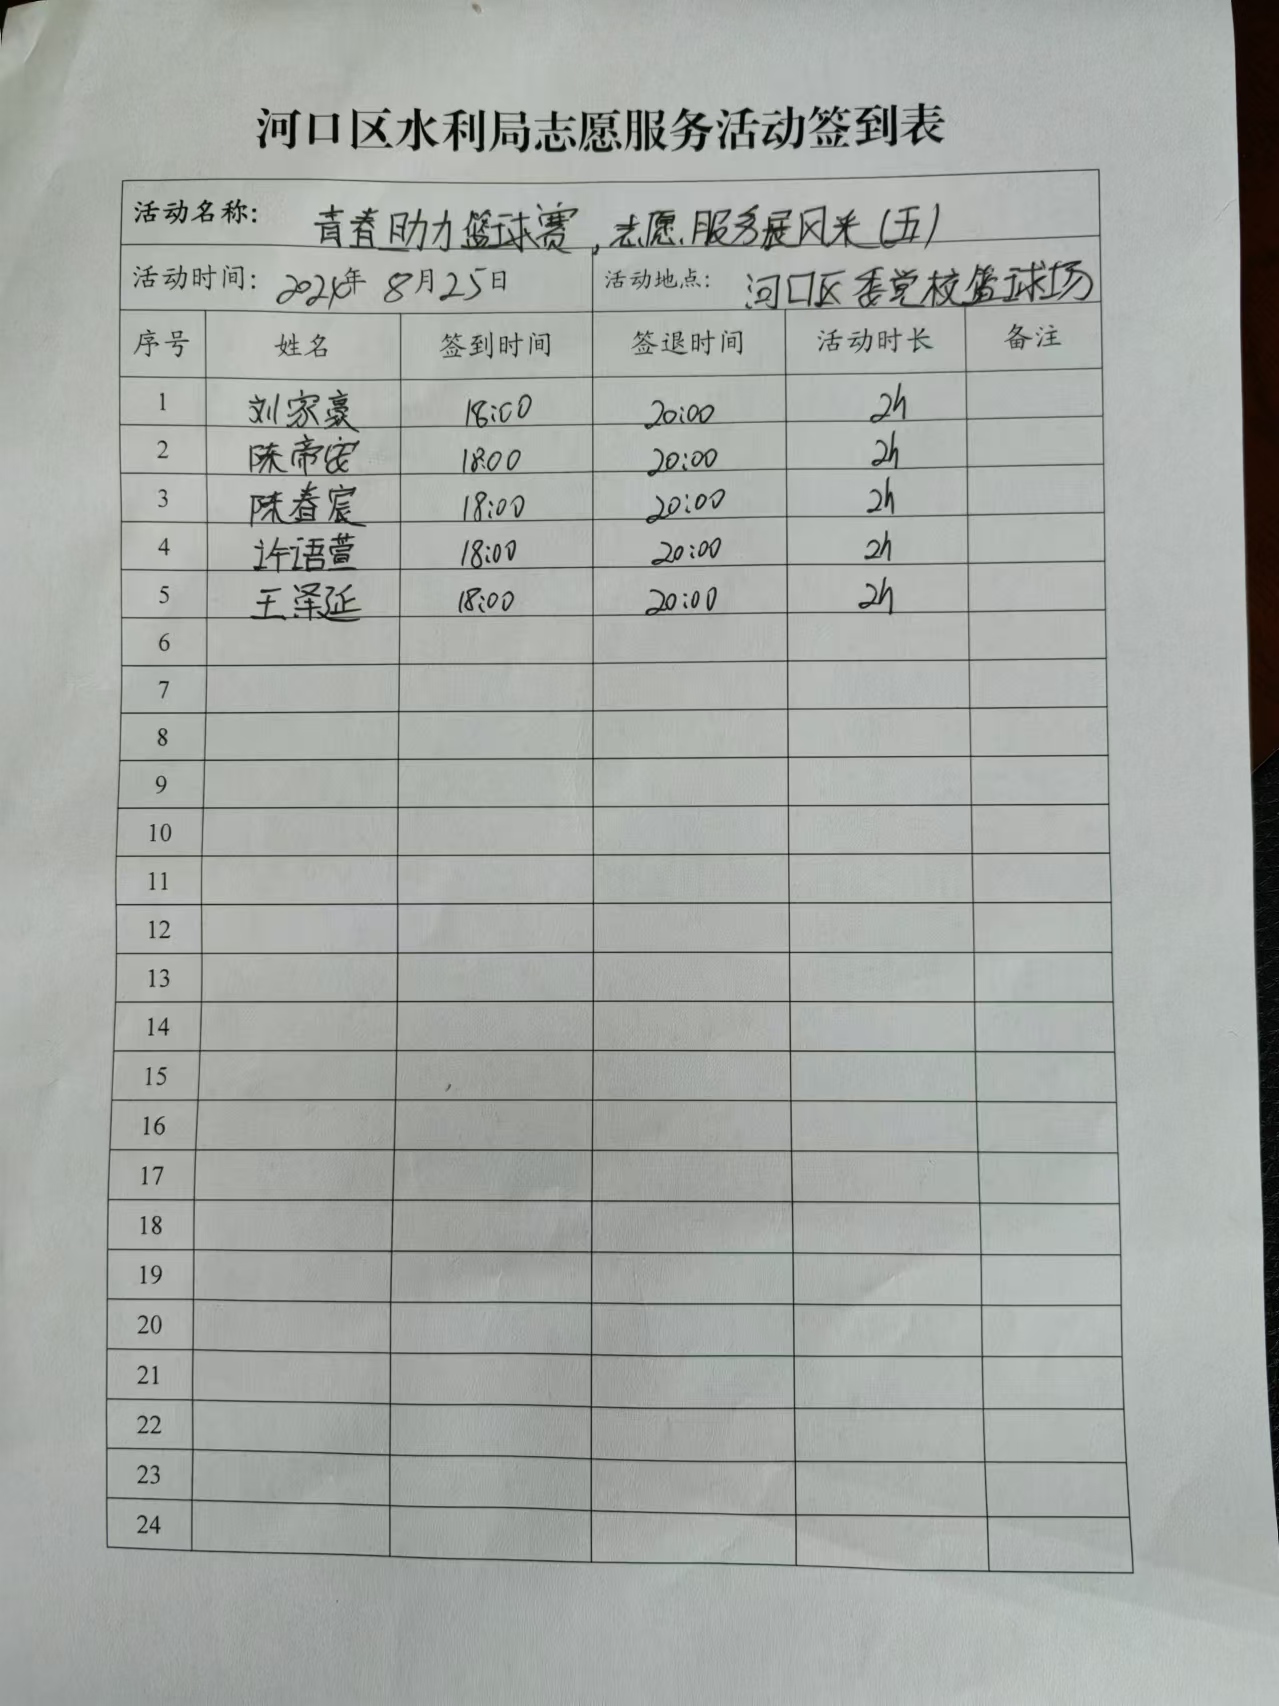 河口区水利局志愿服务活动签到表
活动名称: 青春助力篮球赛,志愿服务展风采(五)
活动时间: 2024年8月25日 活动地点: 河口区委党校篮球场
序号 姓名 签到时间 签退时间 活动时长 备注
1 刘家豪 18:00 20:00 2h
2 陈帝安 18:00 20:00 2h
3 陈春宸 18:00 20:00 2h
4 许语萱 18:00 20:00 2h
5 王泽延 18:00 20:00 2h
6
7
8
9
10
11
12
13
14
15
16
17
18
19
20
21
22
23
24